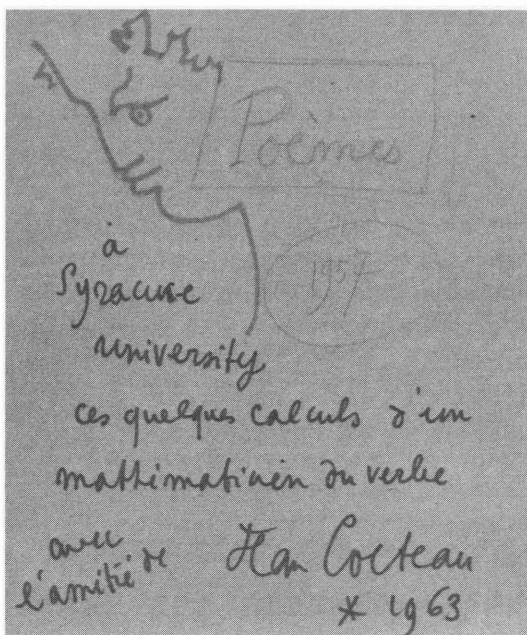 Poèmes
1957
à
Syracuse
University
ces quelques calculs d'un
mathématicien du verbe
avec
l'amitié de Jean Cocteau
* 1963